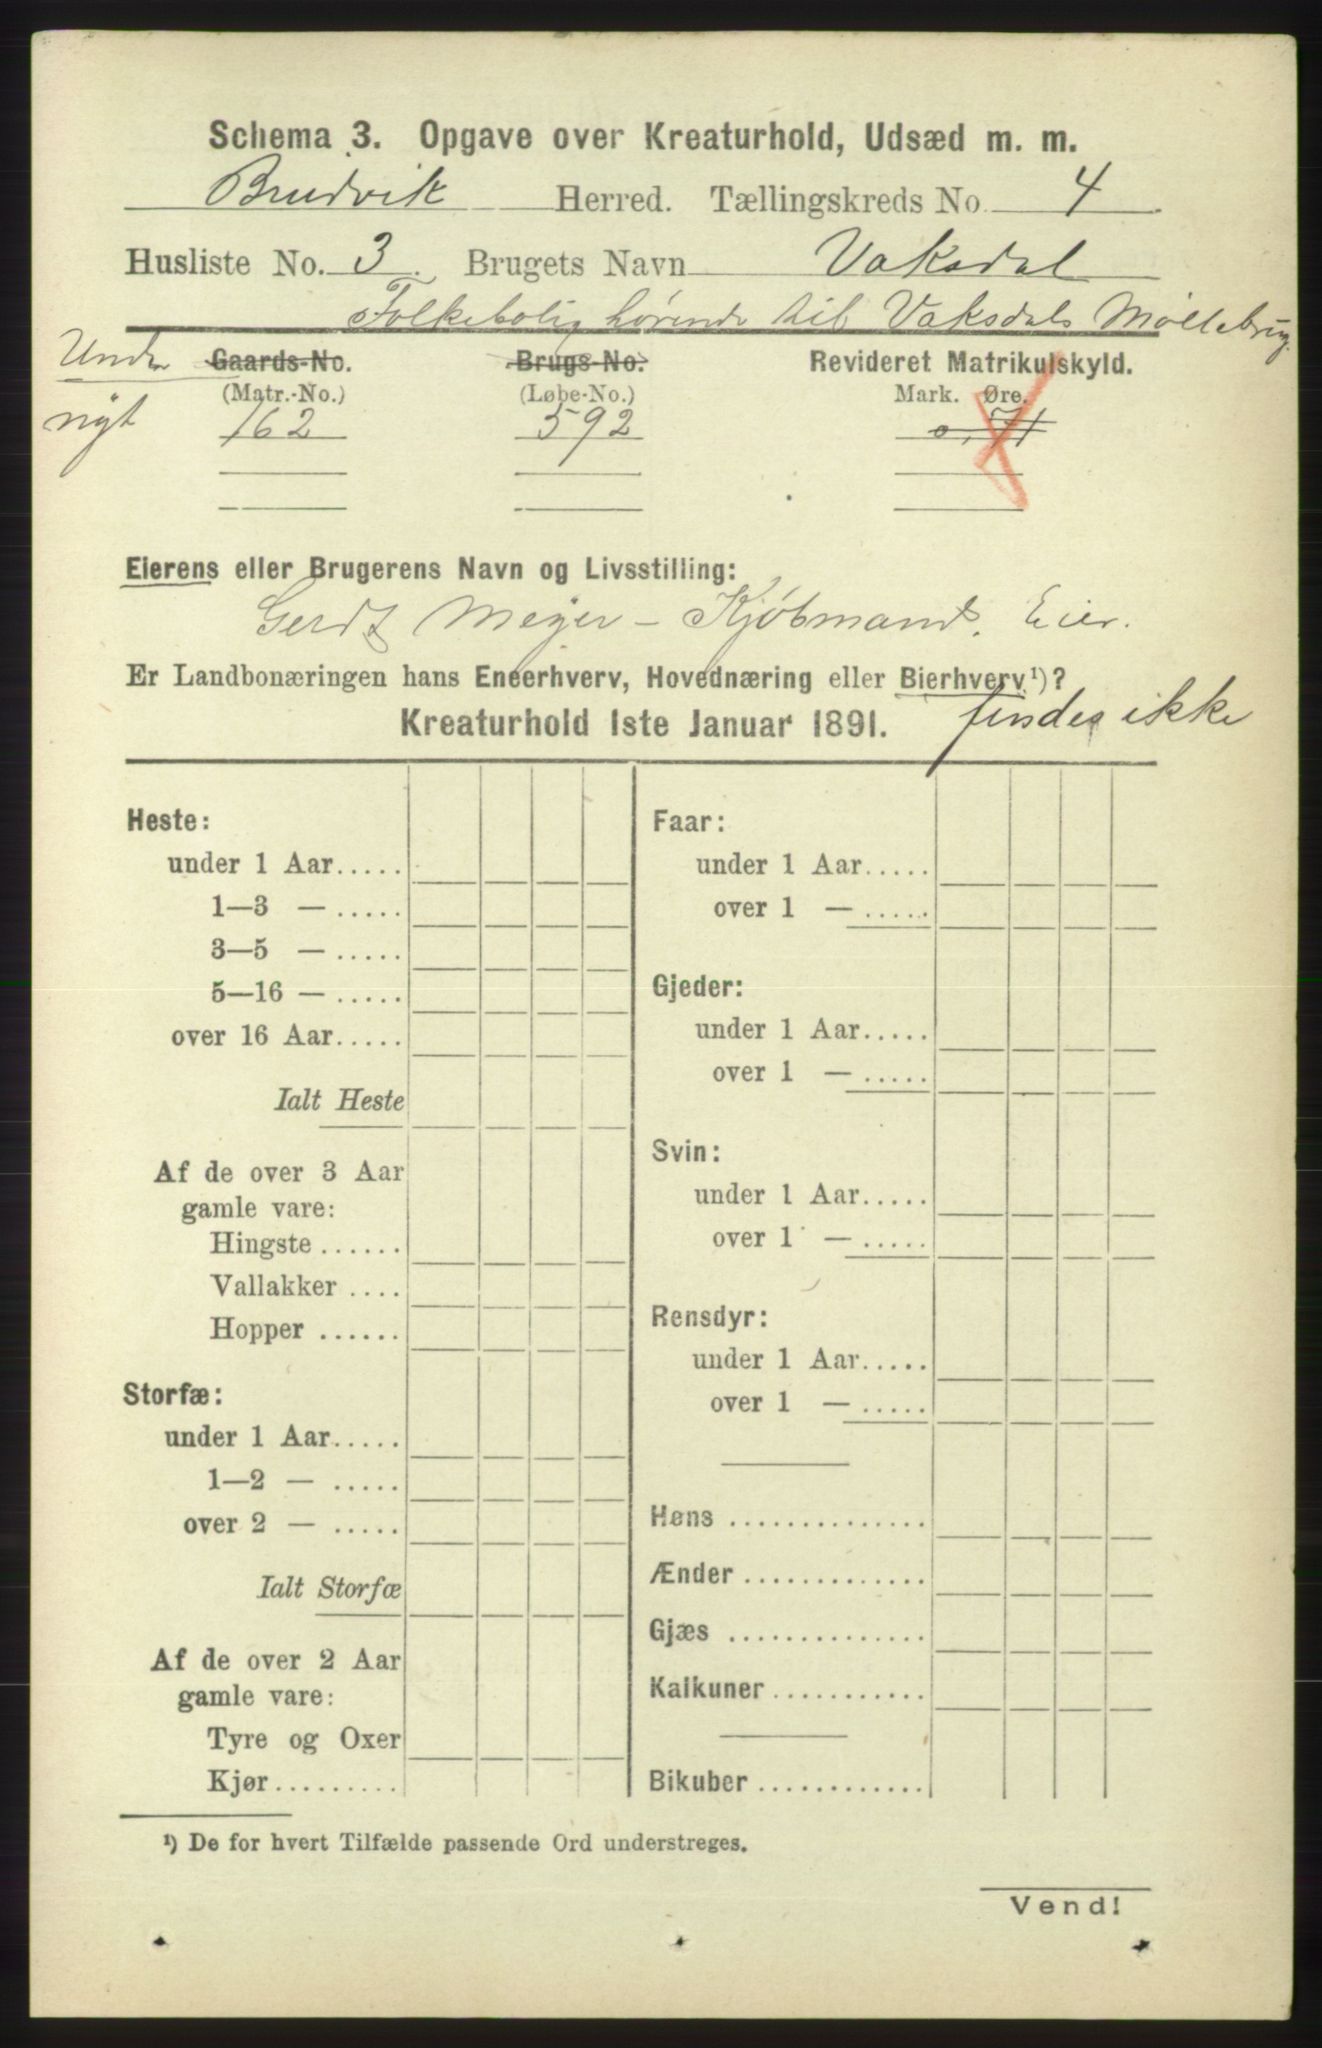 Schema 3. Opgave over Kreaturhold, Udsæd m. m.
Brudvik Herred. Tællingskreds No. 4
Husliste No. 3. Brugets Navn Vaksdal
Folkebolig hørende til Vaksdals Møllebrug.
Under Gaards-No. Brugs-No. Revideret Matrikulskyld.
(Matr.-No.) (Løbe-No.) Mark. Øre.
nyt 162 592 0,71
Eierens eller Brugerens Navn og Livsstilling:
Gerdt Meyer – Kjøbmand. Eier.
Er Landbonæringen hans Eneerhverv, Hovednæring eller Bierhverv¹)?
Kreaturhold 1ste Januar 1891. findes ikke
Heste:
under 1 Aar.....
1—3 — .....
3—5 — .....
5—16 — .....
over 16 Aar.....
Ialt Heste
Af de over 3 Aar
gamle vare:
Hingste ......
Vallakker ....
Hopper ......
Storfæ:
under 1 Aar.....
1—2 — .....
over 2 — .....
Ialt Storfæ
Af de over 2 Aar
gamle vare:
Tyre og Oxer
Kjør.........
Faar:
under 1 Aar.....
over 1 — .....
Gjeder:
under 1 Aar.....
over 1 — .....
Svin:
under 1 Aar.....
over 1 — .....
Rensdyr:
under 1 Aar.....
over 1 — .....
Høns ..............
Ænder .............
Gjæs ..............
Kalkuner ...........
Bikuber ............
¹) De for hvert Tilfælde passende Ord understreges.
Vend!